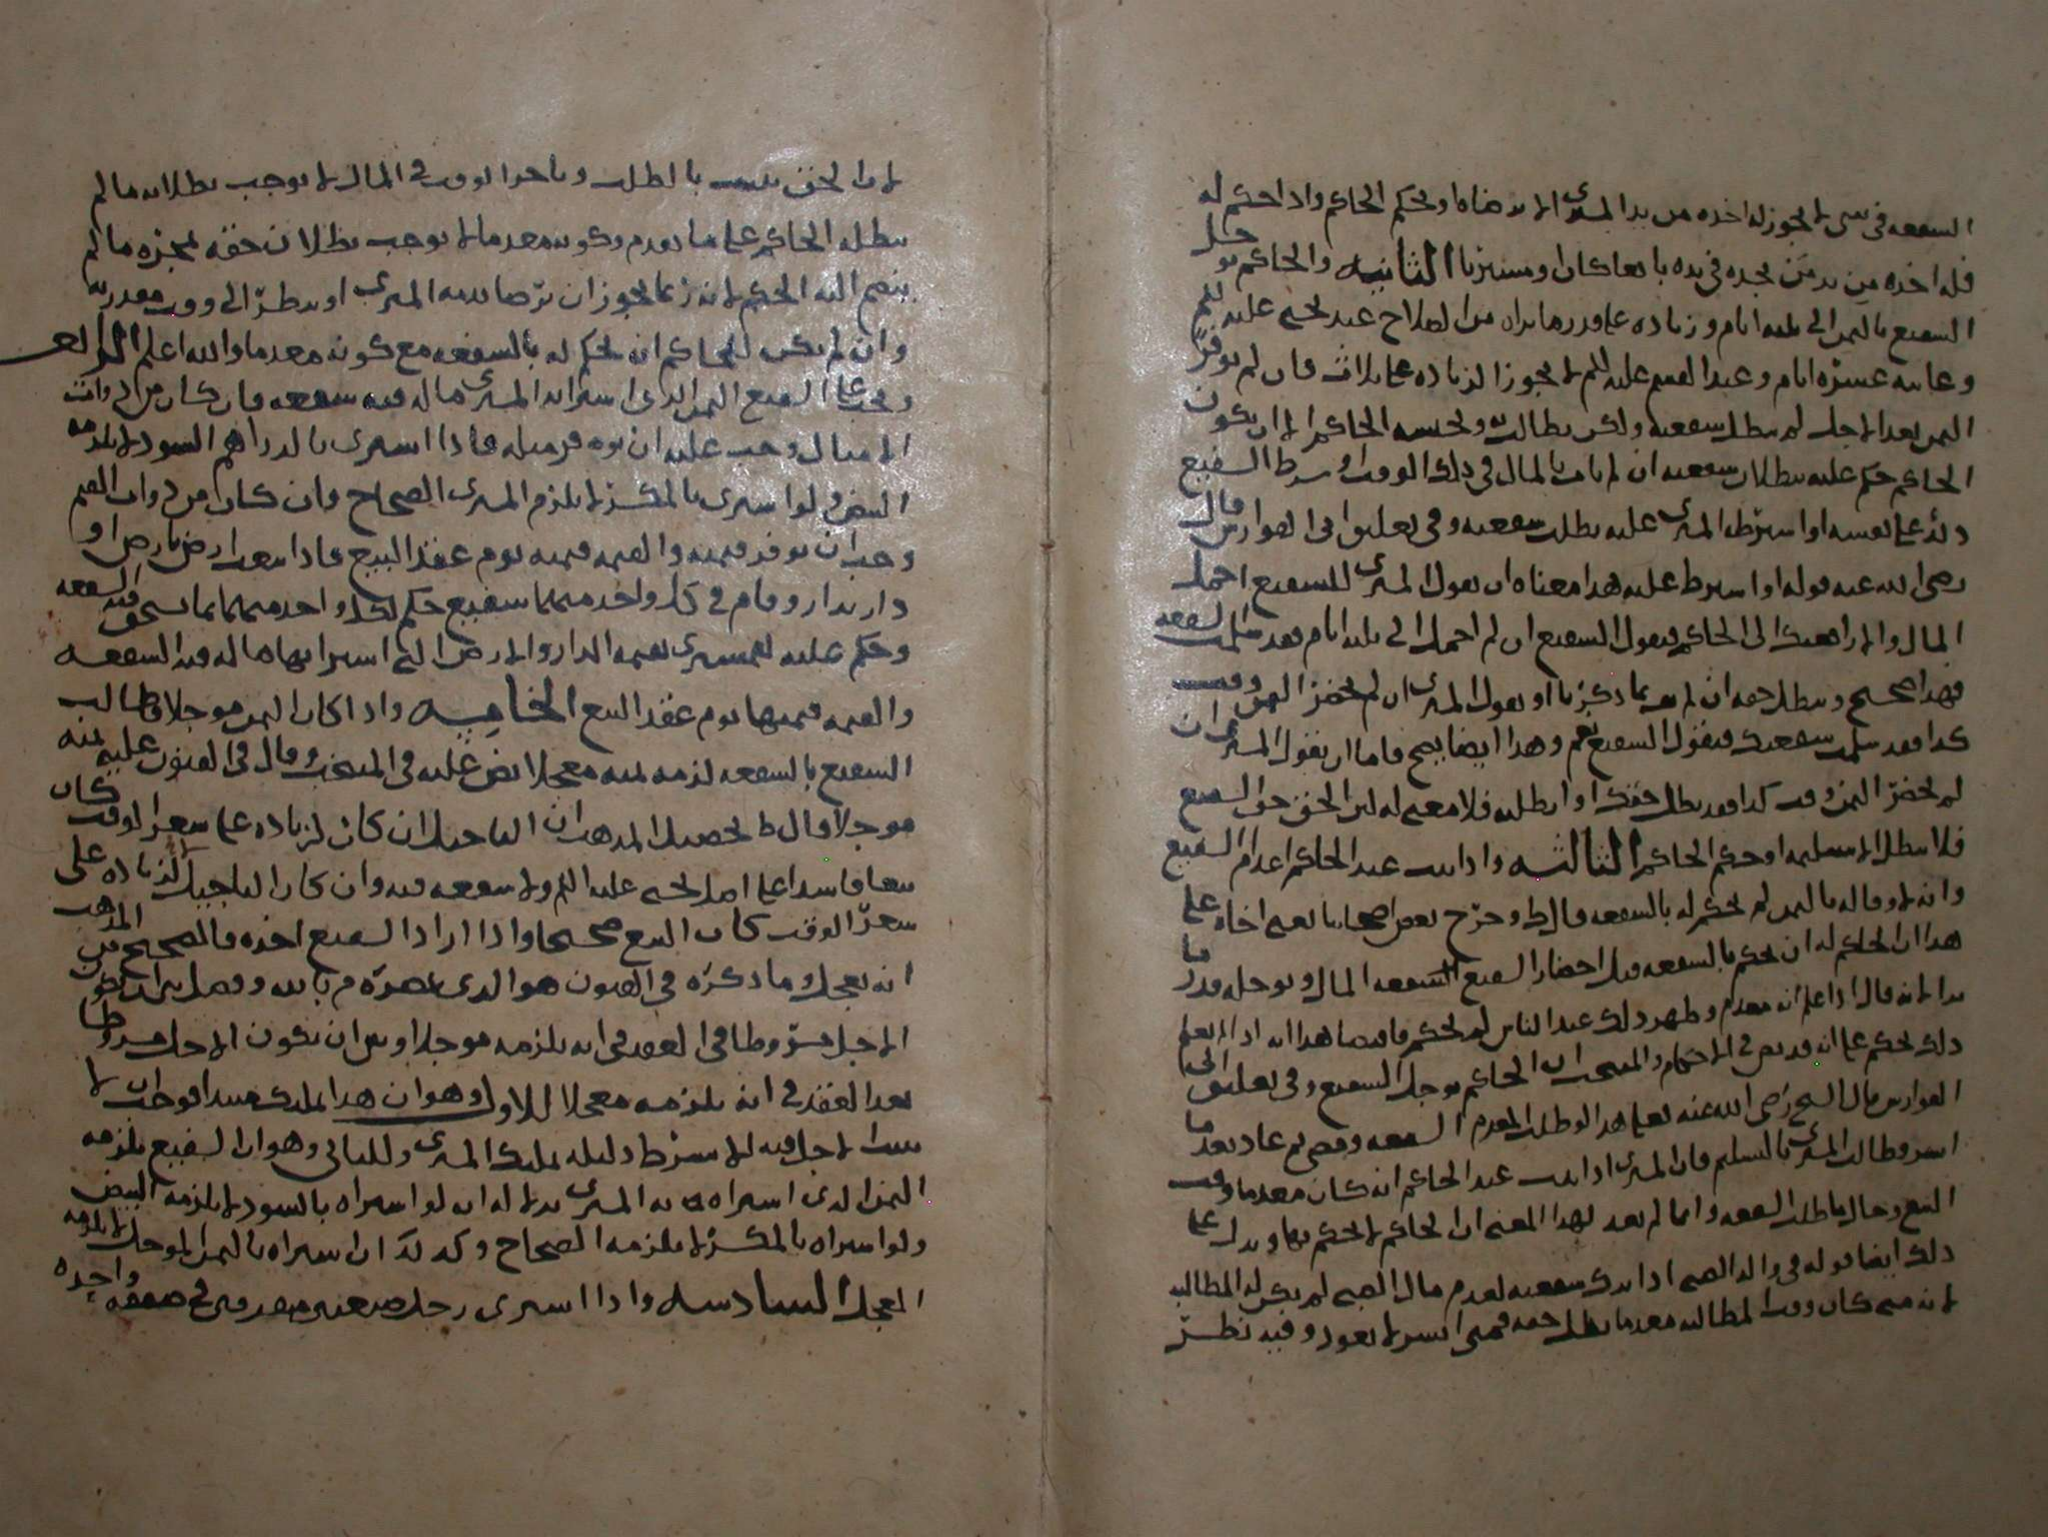 السفعه في شي لا يجوز له اخذه من يد المشتري الا برضاه او بحكم الحاكم واذا حكم له
فله اخذه من يد من يجده في يده بائعا كان او مشتريا الثانيه والحاكم يوجل
الشفيع بالثمن الى ثلثه ايام وزياده على قدر ما يراه من الصلاح عند يحيى عليه السلم
وغايته عشرة ايام وعند القسم عليه السلم لا يجوز الزياده على ثلاث فان لم يوفر
الثمن بعد الاجل لم تبطل شفعته ولكن يطالب به ويحبسه الحاكم الا ان يكون
الحاكم حكم عليه ببطلان شفعته ان لم يات بالمال في ذلك الوقت او شرط الشفيع
ذلك على نفسه او اشترطه المشتري عليه بطلت شفعته وفي تعليق ابي الفوارس قال
رضي الله عنه قوله او اشترط عليه هذا معناه ان يقول المشتري للشفيع احمل
المال والا رافعتك الى الحاكم فيقول الشفيع ان لم احمل الى ثلثه ايام فقد سلمت الشفعه
فهذا صحيح ويبطل حقه ان لم يف بما ذكرنا او يقول المشتري ان لم تحضر الثمن وقت
كذا فقد سلمت شفعتك فيقول الشفيع نعم وهذا ايضا يصح فاما ان يقول المشتري ان
لم تحضر الثمن وقت كذا فقد بطل حقك او ابطلته فلا معنى له لان الحق حق الشفيع
فلا يبطل الا بتسليمه او حكم الحاكم الثالثه واذا ثبت عند الحاكم اعدام الشفيع
وانه لا وفا له بالثمن لم يحكم له بالشفعه قال ط وخرج بعض اصحابنا يعني اخاه على
هذا ان الحاكم له ان يحكم بالشفعه قبل احضار الشفيع المال ويوجله قدر ما
يرا لانه قال اذا علم انه معدم وظهر ذلك عند الناس لم يحكم فاقتضا هذا انه اذا لم يعلم
ذلك يحكم على انه قد نص في الاحكام والمنتخب ان الحاكم يوجل الشفيع وفي تعليق ابي
الفوارس قال الشيخ رضي الله عنه فعلى هذا لو طلب المعدم الشفعه ومضى ثم عاد بعد ما
ايسر وطالب المشتري بالتسليم فان المشتري اذا ثبت عند الحاكم انه كان معدما وقت
البيع وحال ما طلب الشفعه وانما لم يعد لهذا المعنى ان الحاكم لا يحكم بها ويدل على
ذلك ايضا قوله في والد الصبي اذا ترك شفعته لعدم مال الصبي لم يكن له المطالبه
لانه متى كان وقت المطالبه معدما بطل حقه فمتى ايسر لا يعود وفيه نظر
لان الحق يثبت بالطلب وتاخر الوقت في المال لا يوجب بطلانه ما لم
يبطله الحاكم على ما تقدم وكونه معدما لا يوجب بطلان حقه بمجرده ما لم
ينضم اليه الحكم لانه ربما يجوز ان يرضا بذمته المشتري او ينظره الى وقت مقدرته
وان لم يكن للحاكم ان يحكم له بالشفعه مع كونه معدما والله اعلم الرابعه
ويجب على الشفيع الثمن الذي اشترا به المشتري ما له فيه شفعه فان كان من ذوات
الامثال وجب عليه ان يوفر مثله فاذا اشترى بالدراهم السود لا يلزمه
البيض ولو اشترى بالمكسر لا يلزم المشتري الصحاح وان كان من ذوات القيم
وجب ان يوفر قيمته والقيمه قيمته يوم عقد البيع فاذا بيعت ارض بارض او
دار بدار وقام في كل واحد منهما شفيع حكم لكل واحد منهما بما يستحق فيه الشفعه
وحكم عليه للمشتري بقيمة الدار والارض التي اشترا بها ما له فيه الشفعه
والقيمه قيمتها يوم عقد البيع الخامسه واذا كان الثمن موجلا وطالب
الشفيع بالشفعه لزمه ثمنه معجلا نص عليه في المنتخب وقال في الفنون عليه ثمنه
موجلا قال ط تحصيل المذهب ان التاجيل ان كان لزياده على سعر الوقت كان
بيعا فاسدا على اصل يحيى عليه السلم ولا شفعه فيه وان كان التاجيل لا لزياده على
سعر الوقت كان البيع صحيحا واذا اراد الشفيع اخذه فالصحيح من المذهب
انه يعجل وما ذكره في الفنون هو الذي نصره م بالله وفصل بين ان يكون
الاجل مشروطا في العقد في انه يلزمه موجلا وبين ان يكون الاجل مشروطا
بعد العقد في انه يلزمه معجلا للاول وهو ان هذا الملك مبتدا فوجب ان لا
يثبت الاجل فيه الا بشرط دليله تملك المشتري وللثاني وهو ان الشفيع يلزمه
الثمن الذي اشتراه به المشتري بدلاله ان لو اشتراه بالسود لا يلزمه البيض
ولو اشتراه بالمكسر لا يلزمه الصحاح وكذلك ان اشتراه بالثمن الموجل لا يلزمه
المعجل السادسه واذا اشترى رجل ضيعتين متفرقتين في صفقه واحده